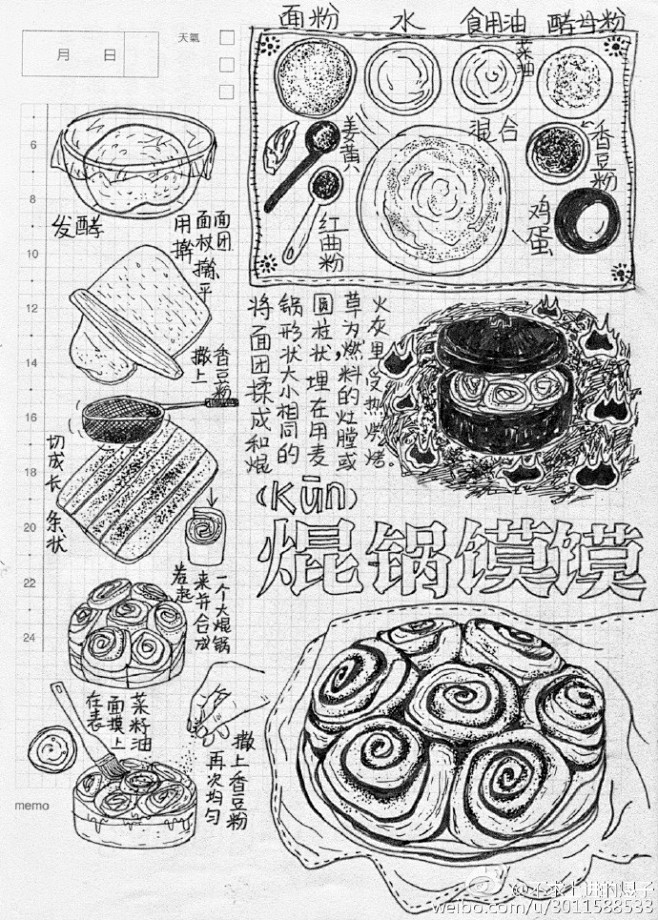 月 日
天氣
面粉 水 食用油 酵母粉
菜油
姜黄
混合
香豆粉
红曲粉
鸡蛋
6
8
10
12
14
16
18
20
22
24
发酵
用擀
面杖擀平
面团
撒上
香豆粉
切成长条状
卷起
来并合成
一个大焜锅
在表
面摸上
菜籽油
再次均匀
撒上香豆粉
将面团揉成和焜
锅形状大小相同的
圆柱状,埋在用麦
草为燃料的灶膛或
火灰里受热烘烤。
(kūn)
焜锅馍馍
memo
weibo.com/u/3011588533